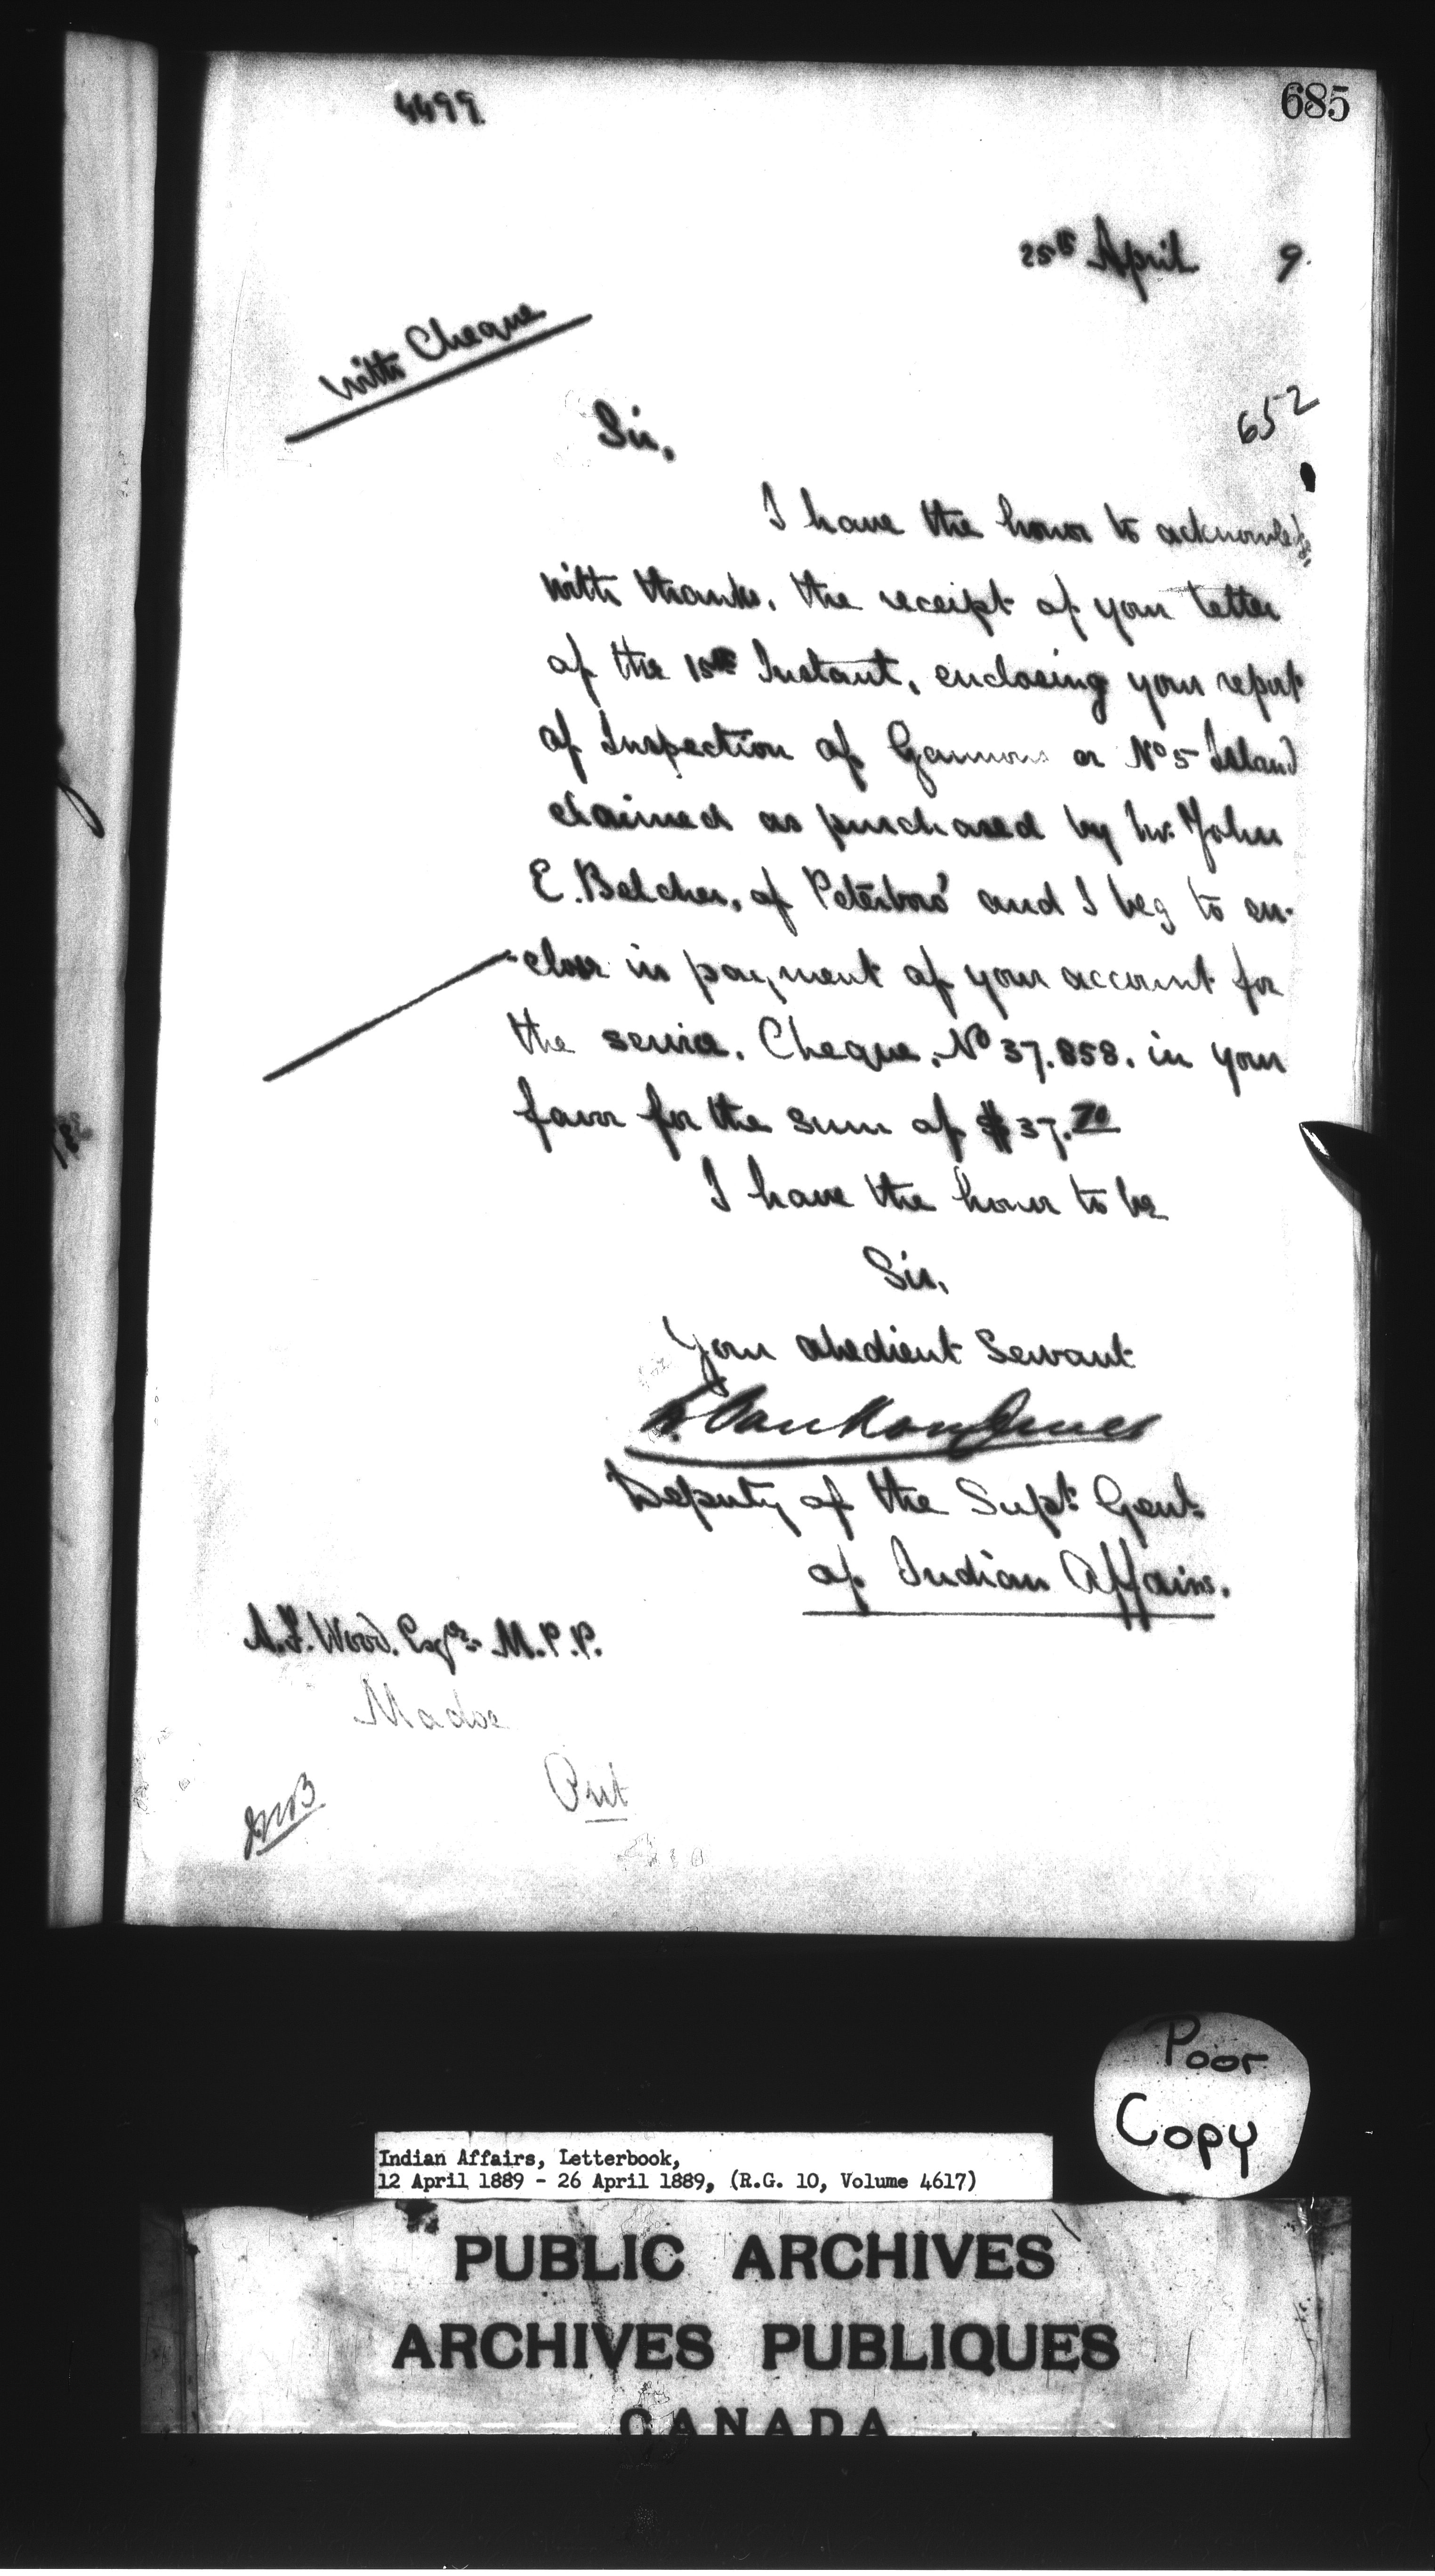 4499.
685
25th April 9.
With Cheque
652
Sir,
I have the honor to acknowledge
with thanks, the receipt of your letter
of the 15th Instant, enclosing your report
of Inspection of Gannons or No 5 Island
claimed as purchased by Mr. John
E. Belcher, of Peterboro' and I beg to en-
-close in payment of your account for
the service, Cheque, No 37.858. in your
favor for the sum of $37.70
I have the honor to be
Sir,
Your obedient Servant
L. Vankoughnet
Deputy of the Supt. Genl.
of Indian Affairs.
A.F. Wood. Esqre. M.P.P.
Madoc
Ont
Poor
Copy
Indian Affairs, Letterbook,
12 April 1889 - 26 April 1889, (R.G. 10, Volume 4617)
PUBLIC ARCHIVES
ARCHIVES PUBLIQUES
CANADA